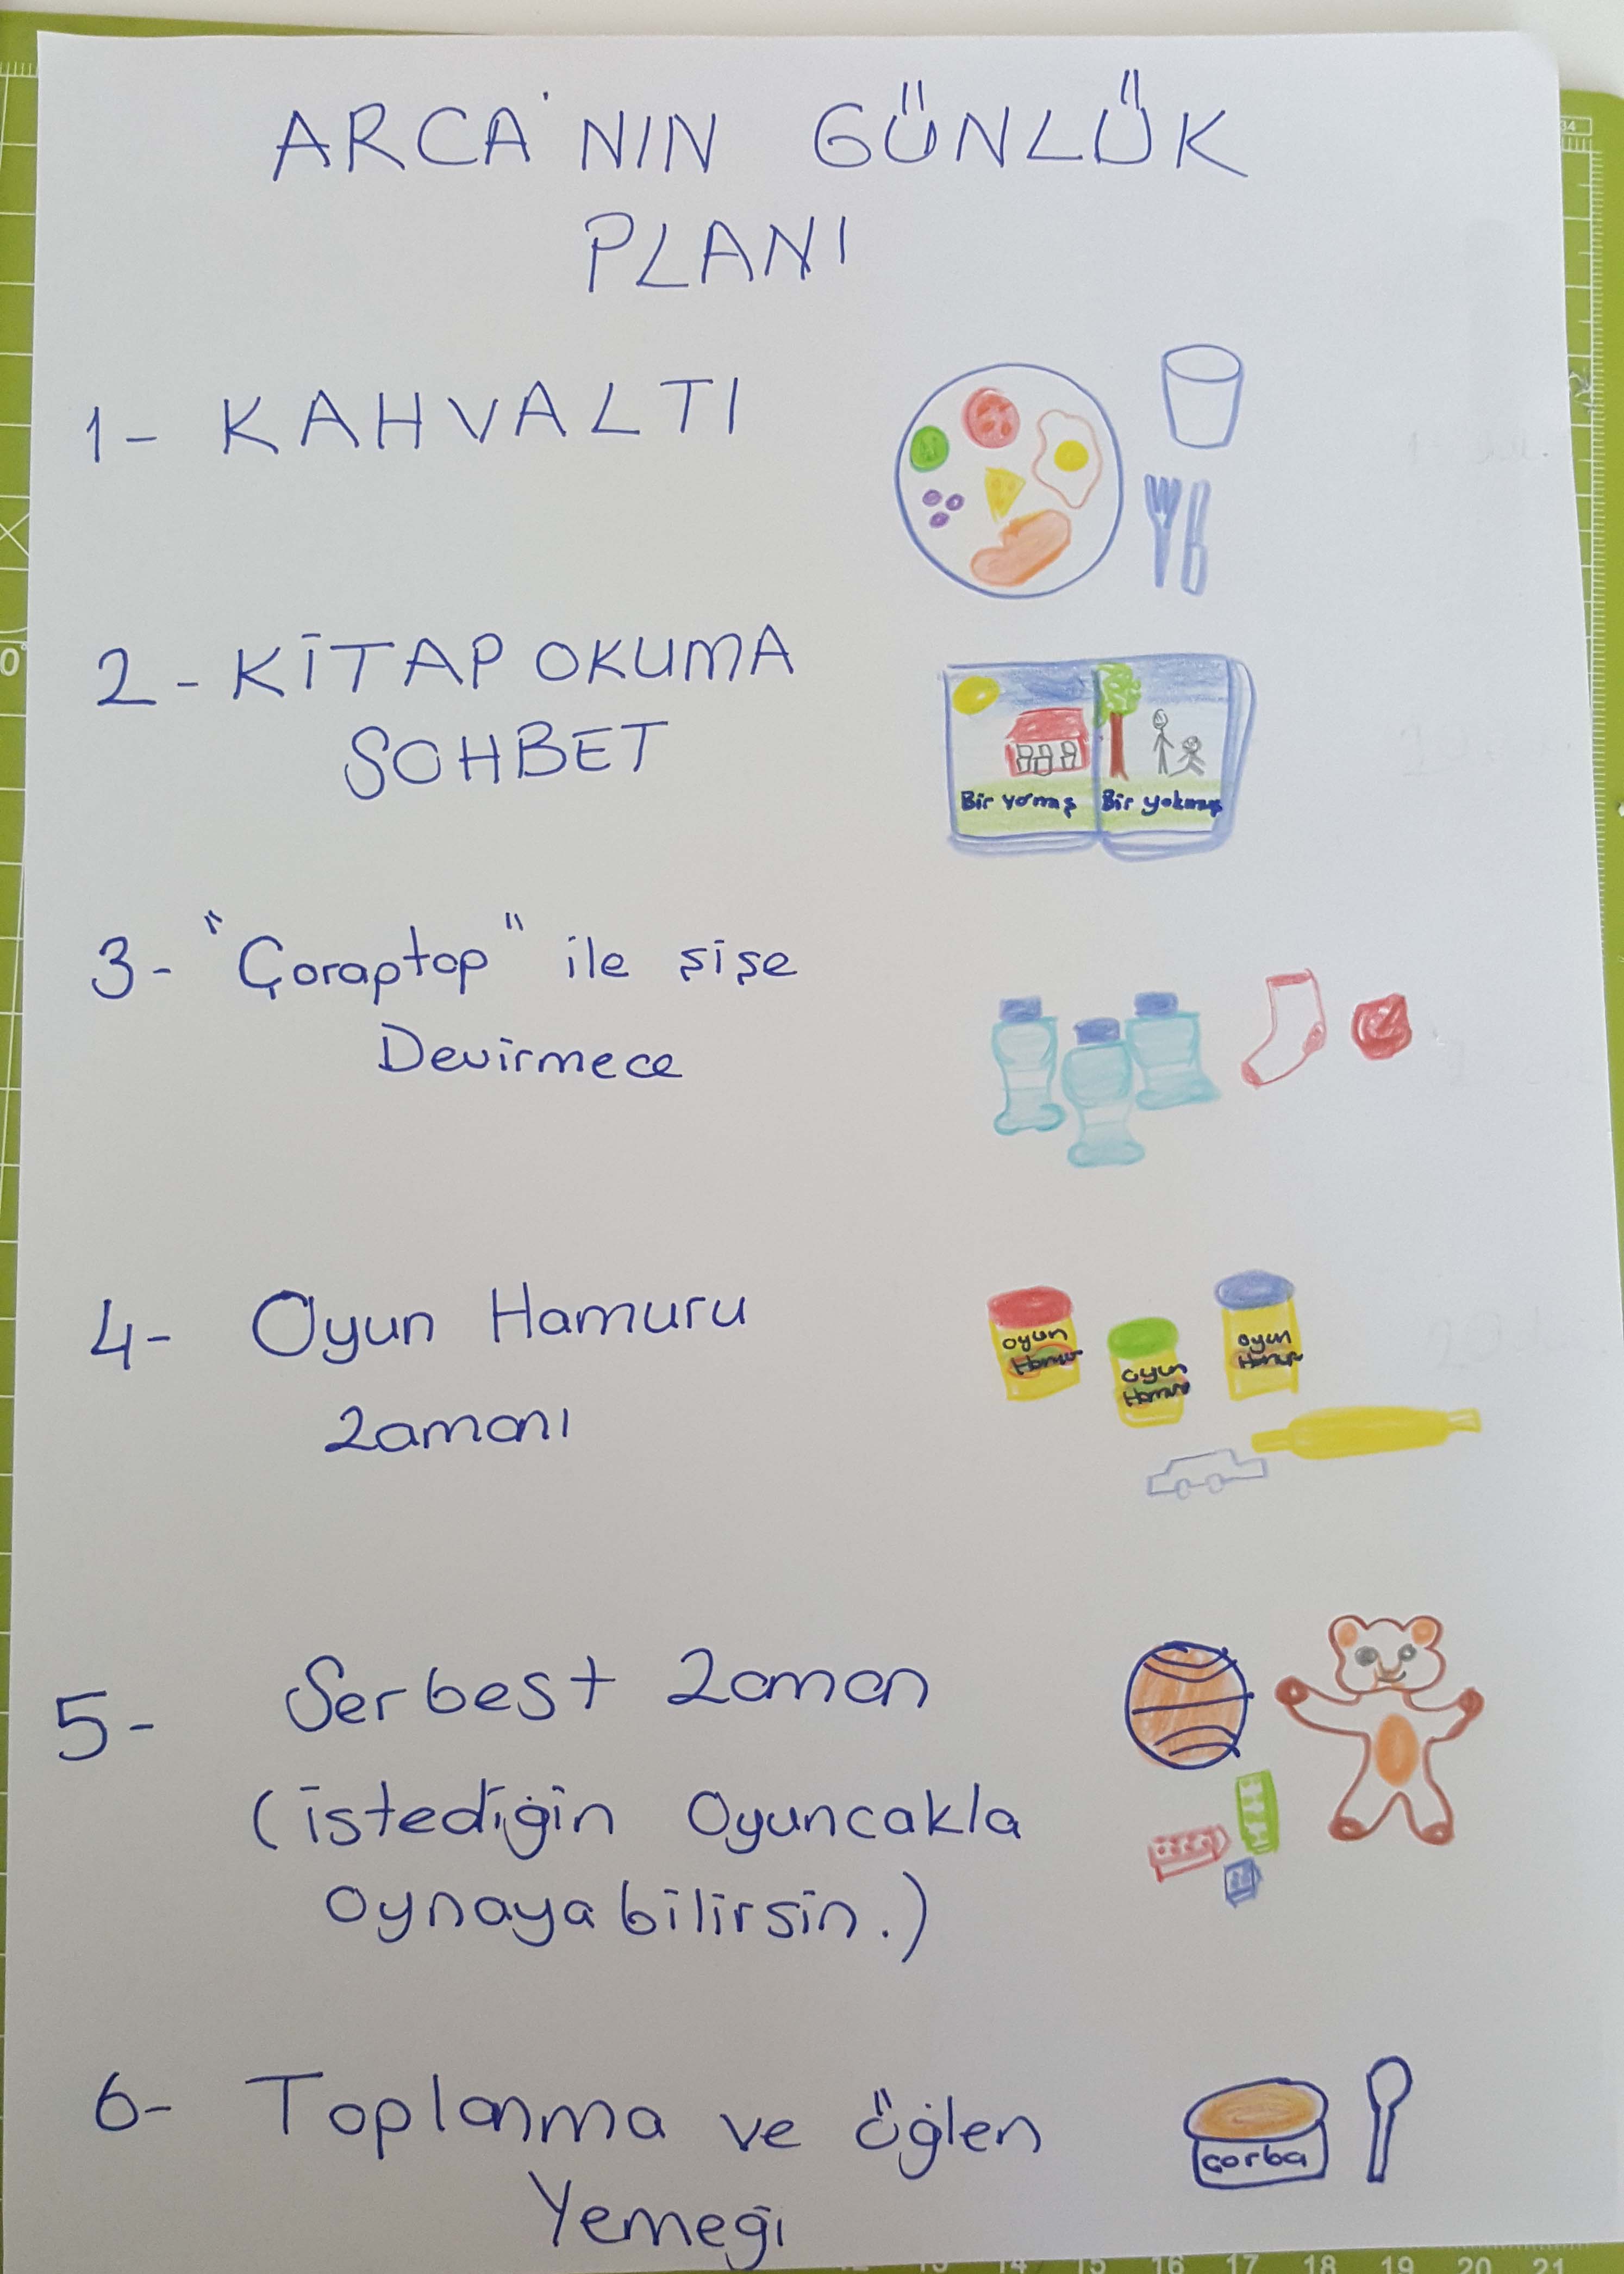 ARCA'NIN GÜNLÜK
PLANI
1- KAHVALTI
2- KİTAP OKUMA
SOHBET
Bir varmış Bir yokmuş
3- "Çoraptop" ile şişe
Devirmece
4- Oyun Hamuru
Zamanı
oyun
Hamuru
oyun
Hamuru
oyun
Hamuru
5- Serbest Zaman
(istediğin Oyuncakla
oynayabilirsin.)
6- Toplanma ve öğlen
Yemeği
çorba
14 15 16 17 18 19 20 21